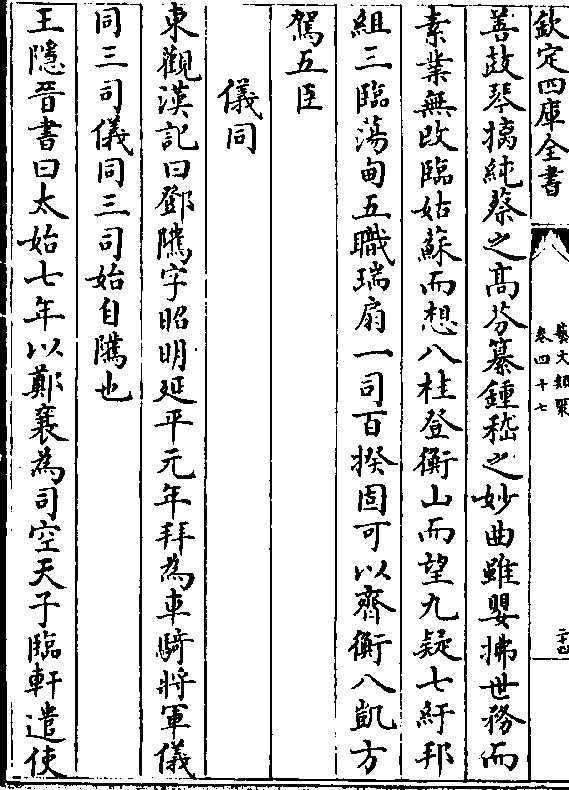 欽定四庫全書
藝文類聚
卷四十七
二十四
善鼓琴摛純蔡之高芬纂鍾嵇之妙曲雖嬰拂世務而
素業無改臨姑蘇而想八桂登衡山而望九疑七紆邦
組三臨蕩甸五職瑞扇一司百揆固可以齊衡八凱方
駕五臣
儀同
東觀漢記曰鄧隲字昭明延平元年拜為車騎將軍儀
同三司儀同三司始自隲也
王隱晉書曰太始七年以鄭袤為司空天子臨軒遣使